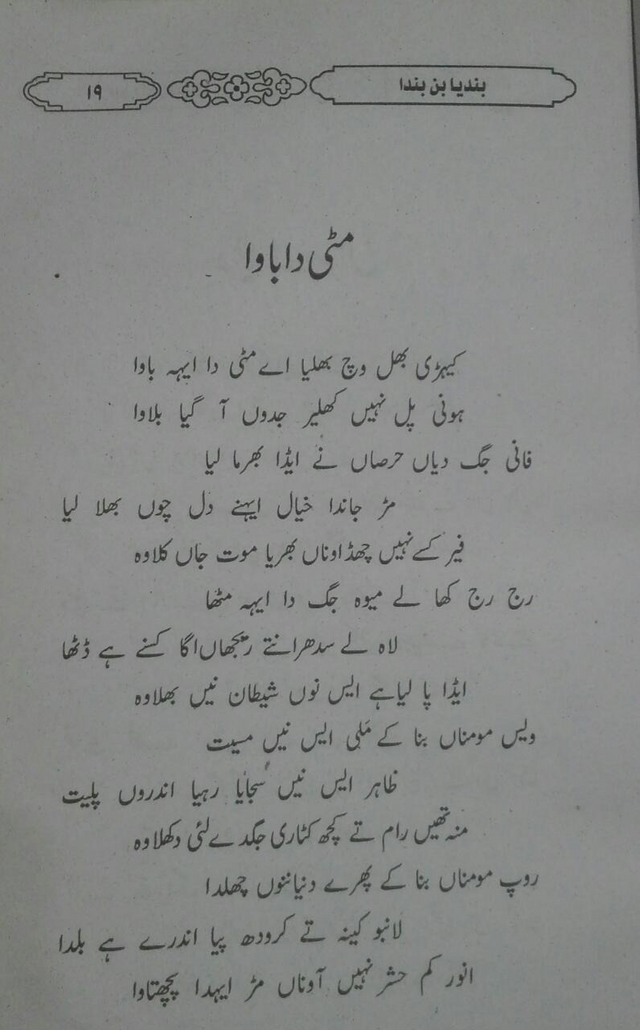 بندیا بن بندا
۱۹
مٹی دا باوا
کیہڑی بھل وچ بھلیا اے مٹی دا ایہہ باوا
ہونی پل نہیں کھلیر جدوں آ گیا بلاوا
فانی جگ دیاں حرصاں نے ایڈا بھرما لیا
مڑ جاندا خیال ایہنے دل چوں بھلا لیا
فیر کسے نہیں چھڈاوناں بھریا موت جاں کلاوہ
رج رج کھا لے میوہ جگ دا ایہہ مٹھا
لاہ لے سدھرانتے ریجھاں اگا کنے ہے ڈٹھا
ایڈا پا لیا ہے ایس نوں شیطان نیں بھلاوہ
ویس مومناں بنا کے مَلی ایس نیں مسیت
ظاہر ایس نیں سُجایا رہیا اندروں پلیت
منہ تھیں رام تے کچھ کٹاری جگ دے لئی دکھلاوہ
روپ مومناں بنا کے پھرے دنیا نوں چھلدا
لانبو کینہ تے کرودھ پیا اندرے ہے بلدا
انور کم حشر نہیں آوناں مڑ ایہدا پچھتاوا